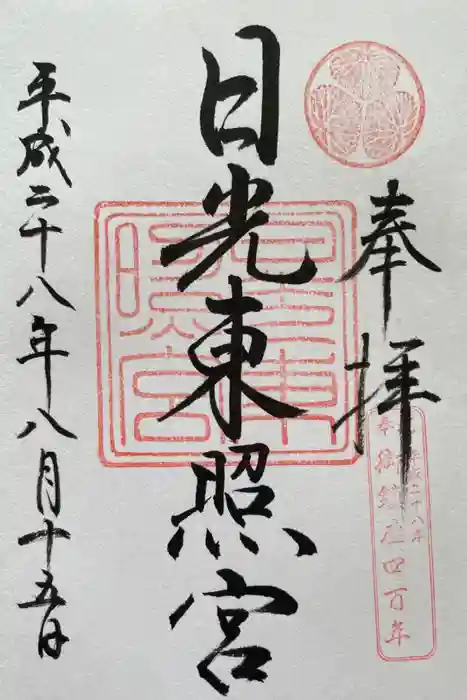 奉拝
平成二十八年
奉 御鎮座四百年
日光東照宮
東照宮
平成二十八年八月十五日